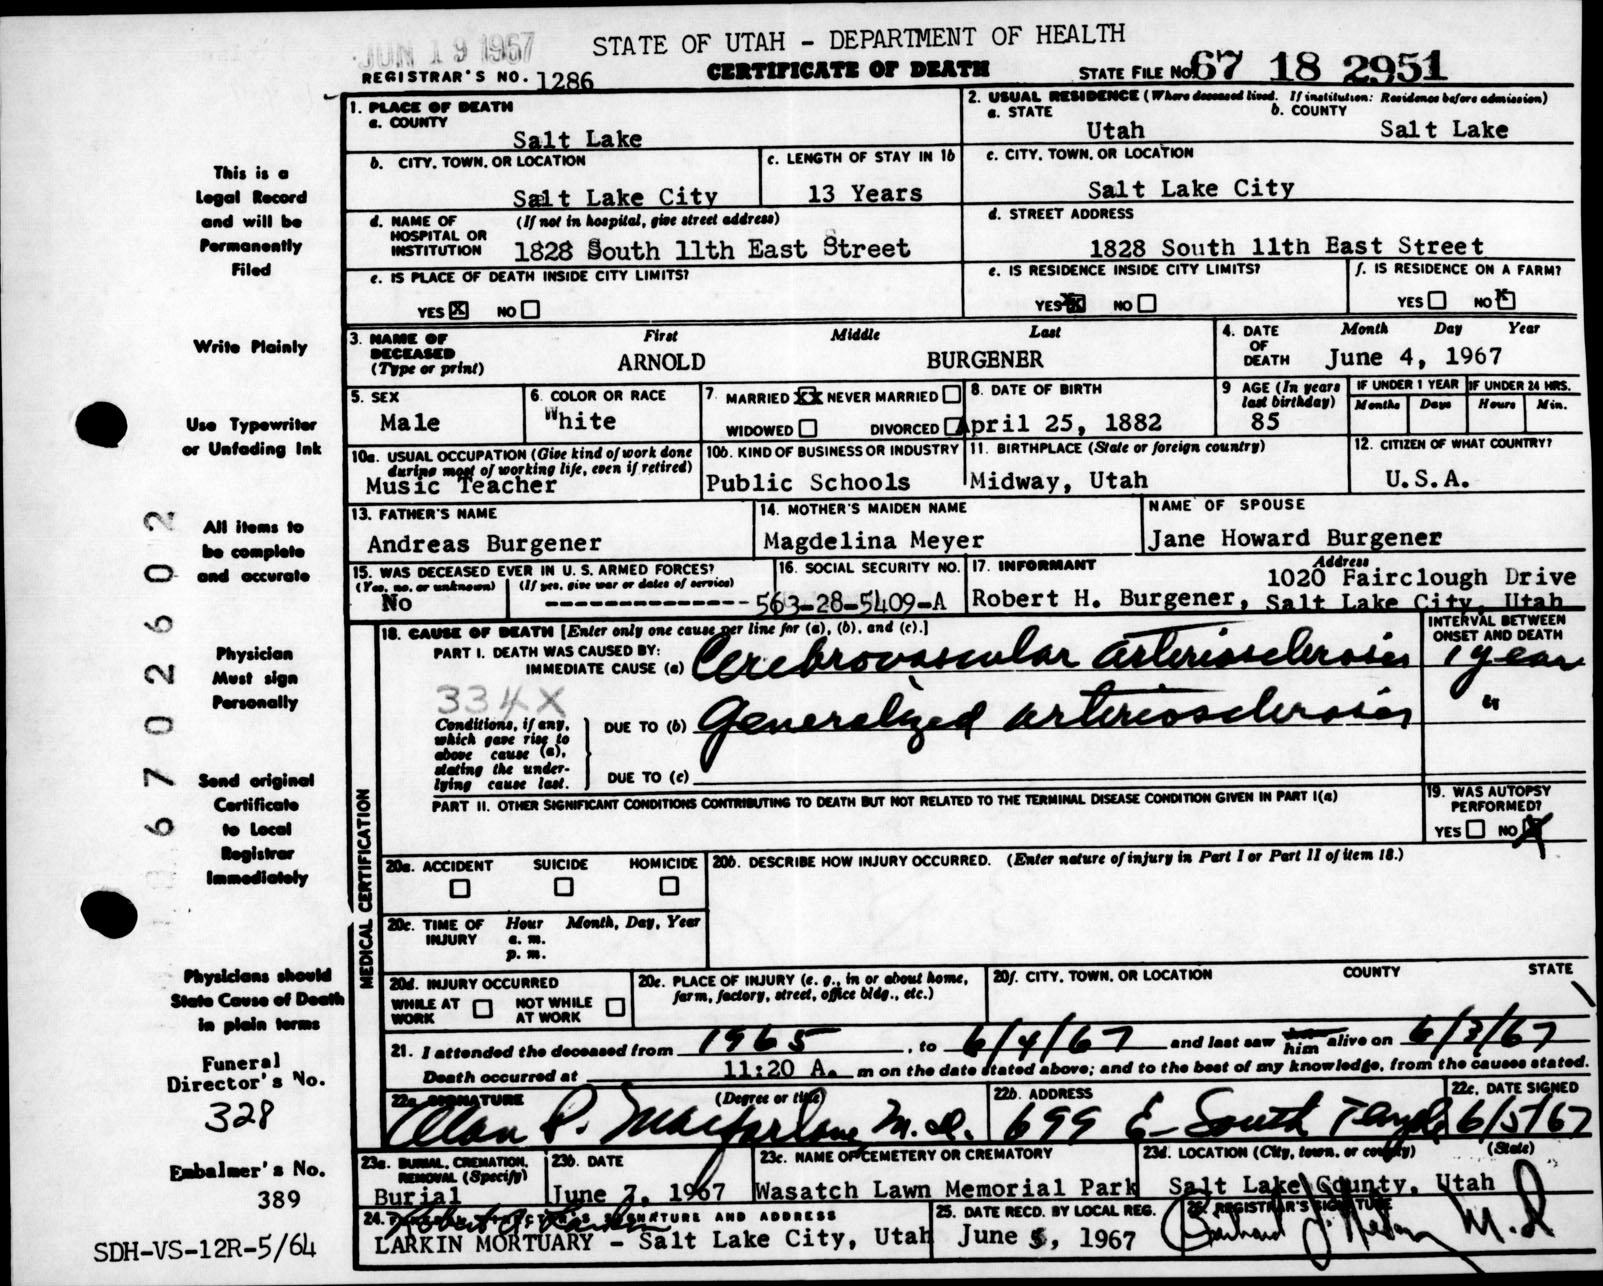 JUN 19 1967
STATE OF UTAH - DEPARTMENT OF HEALTH
REGISTRAR'S NO. 1286
CERTIFICATE OF DEATH
STATE FILE NO. 67 18 2951
1. PLACE OF DEATH
a. COUNTY
Salt Lake
2. USUAL RESIDENCE (Where deceased lived. If institution: Residence before admission)
a. STATE b. COUNTY
Utah Salt Lake
b. CITY, TOWN, OR LOCATION
Salt Lake City
c. LENGTH OF STAY IN 1b
13 Years
c. CITY, TOWN, OR LOCATION
Salt Lake City
d. NAME OF HOSPITAL OR INSTITUTION (If not in hospital, give street address)
1828 South 11th East Street
d. STREET ADDRESS
1828 South 11th East Street
e. IS PLACE OF DEATH INSIDE CITY LIMITS?
YES X NO
e. IS RESIDENCE INSIDE CITY LIMITS?
YES X NO
f. IS RESIDENCE ON A FARM?
YES NO X
3. NAME OF DECEASED (Type or print)
First Middle Last
ARNOLD BURGENER
4. DATE OF DEATH
Month Day Year
June 4, 1967
5. SEX
Male
6. COLOR OR RACE
White
7. MARRIED XX NEVER MARRIED
WIDOWED DIVORCED
8. DATE OF BIRTH
April 25, 1882
9 AGE (In years last birthday)
85
IF UNDER 1 YEAR IF UNDER 24 HRS.
Months Days Hours Min.
10a. USUAL OCCUPATION (Give kind of work done during most of working life, even if retired)
Music Teacher
10b. KIND OF BUSINESS OR INDUSTRY
Public Schools
11. BIRTHPLACE (State or foreign country)
Midway, Utah
12. CITIZEN OF WHAT COUNTRY?
U.S.A.
13. FATHER'S NAME
Andreas Burgener
14. MOTHER'S MAIDEN NAME
Magdelina Meyer
NAME OF SPOUSE
Jane Howard Burgener
15. WAS DECEASED EVER IN U. S. ARMED FORCES?
(Yes, no, or unknown) (If yes, give war or dates of service)
No --------------
16. SOCIAL SECURITY NO.
563-28-5409-A
17. INFORMANT Address
Robert H. Burgener, 1020 Fairclough Drive
Salt Lake City, Utah
MEDICAL CERTIFICATION
18. CAUSE OF DEATH [Enter only one cause per line for (a), (b), and (c).]
INTERVAL BETWEEN ONSET AND DEATH
PART I. DEATH WAS CAUSED BY:
IMMEDIATE CAUSE (a) Cerebrovascular arteriosclerosis 1 year
334X
Conditions, if any, which gave rise to above cause (a), stating the underlying cause last.
DUE TO (b) Generalized arteriosclerosis "
DUE TO (c)
PART II. OTHER SIGNIFICANT CONDITIONS CONTRIBUTING TO DEATH BUT NOT RELATED TO THE TERMINAL DISEASE CONDITION GIVEN IN PART I(a)
19. WAS AUTOPSY PERFORMED?
YES NO X
20a. ACCIDENT SUICIDE HOMICIDE
20b. DESCRIBE HOW INJURY OCCURRED. (Enter nature of injury in Part I or Part II of item 18.)
20c. TIME OF INJURY Hour Month, Day, Year
a. m.
p. m.
20d. INJURY OCCURRED
WHILE AT WORK NOT WHILE AT WORK
20e. PLACE OF INJURY (e. g., in or about home, farm, factory, street, office bldg., etc.)
20f. CITY, TOWN, OR LOCATION COUNTY STATE
21. I attended the deceased from 1965, to 6/4/67 and last saw him alive on 6/3/67
Death occurred at 11:20 A. m on the date stated above; and to the best of my knowledge, from the causes stated.
22a. SIGNATURE (Degree or title)
Alan P. Macfarlane M.D.
22b. ADDRESS
699 E- South Temple
22c. DATE SIGNED
6/5/67
23a. BURIAL, CREMATION, REMOVAL (Specify)
Burial
23b. DATE
June 7, 1967
23c. NAME OF CEMETERY OR CREMATORY
Wasatch Lawn Memorial Park
23d. LOCATION (City, town, or county) (State)
Salt Lake County, Utah
24. SIGNATURE AND ADDRESS
LARKIN MORTUARY - Salt Lake City, Utah
25. DATE RECD. BY LOCAL REG.
June 5, 1967
26. REGISTRAR'S SIGNATURE
M.D
This is a
Legal Record
and will be
Permanently
Filed
Write Plainly
Use Typewriter
or Unfading Ink
All items to
be complete
and accurate
Physician
Must sign
Personally
Send original
Certificate
to Local
Registrar
Immediately
Physicians should
State Cause of Death
in plain terms
Funeral
Director's No.
328
Embalmer's No.
389
SDH-VS-12R-5/64
67 02602